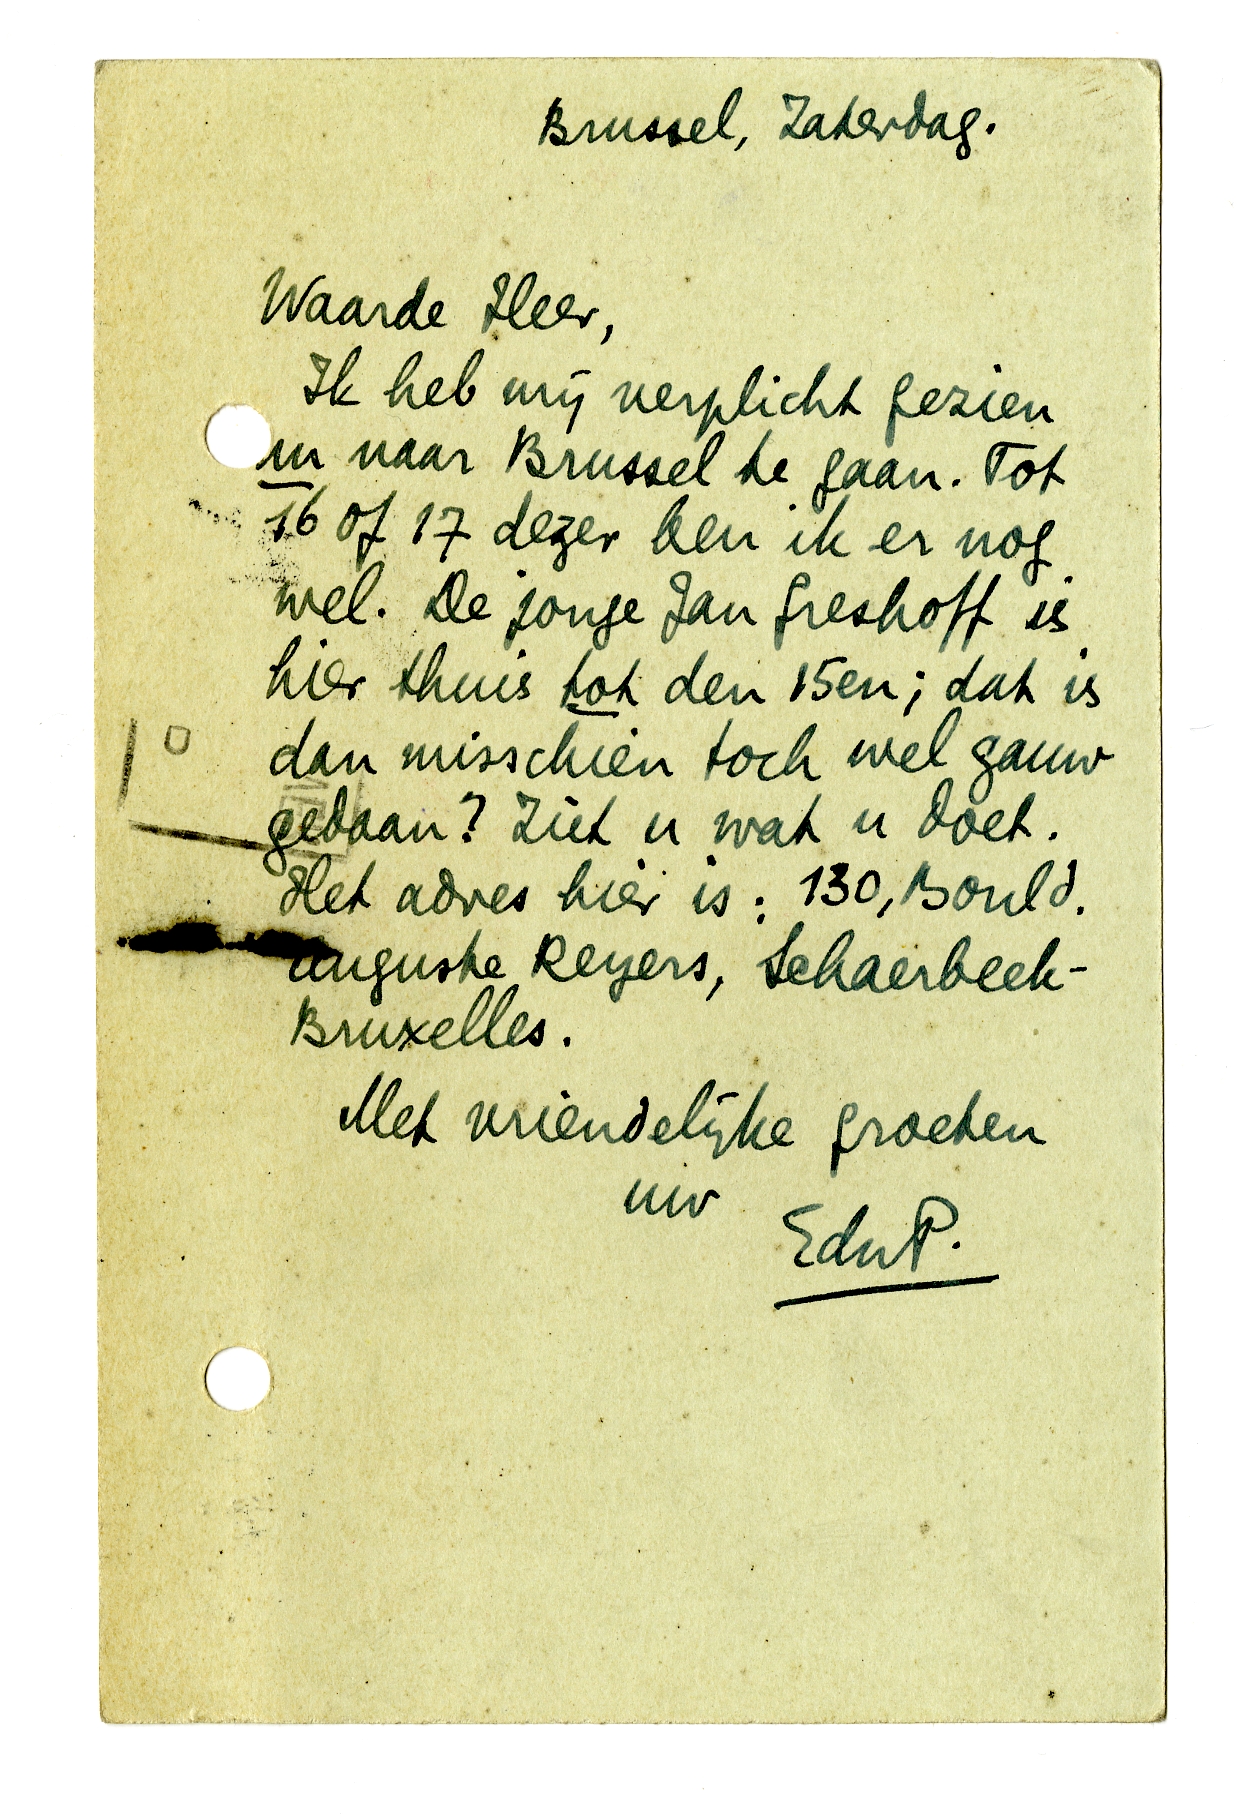 Brussel, Zaterdag.
Waarde Heer,
Ik heb mij verplicht gezien
nu naar Brussel te gaan. Tot
16 of 17 dezer ben ik er nog
wel. De jonge Jan Greshoff is
hier thuis tot den 15en; dat is
dan misschien toch wel gauw
gedaan? Ziet u wat u doet.
Het adres hier is: 130, Bould.
Auguste Reyers, Schaerbeek-
Bruxelles.
Met vriendelijke groeten
uw
EduP.